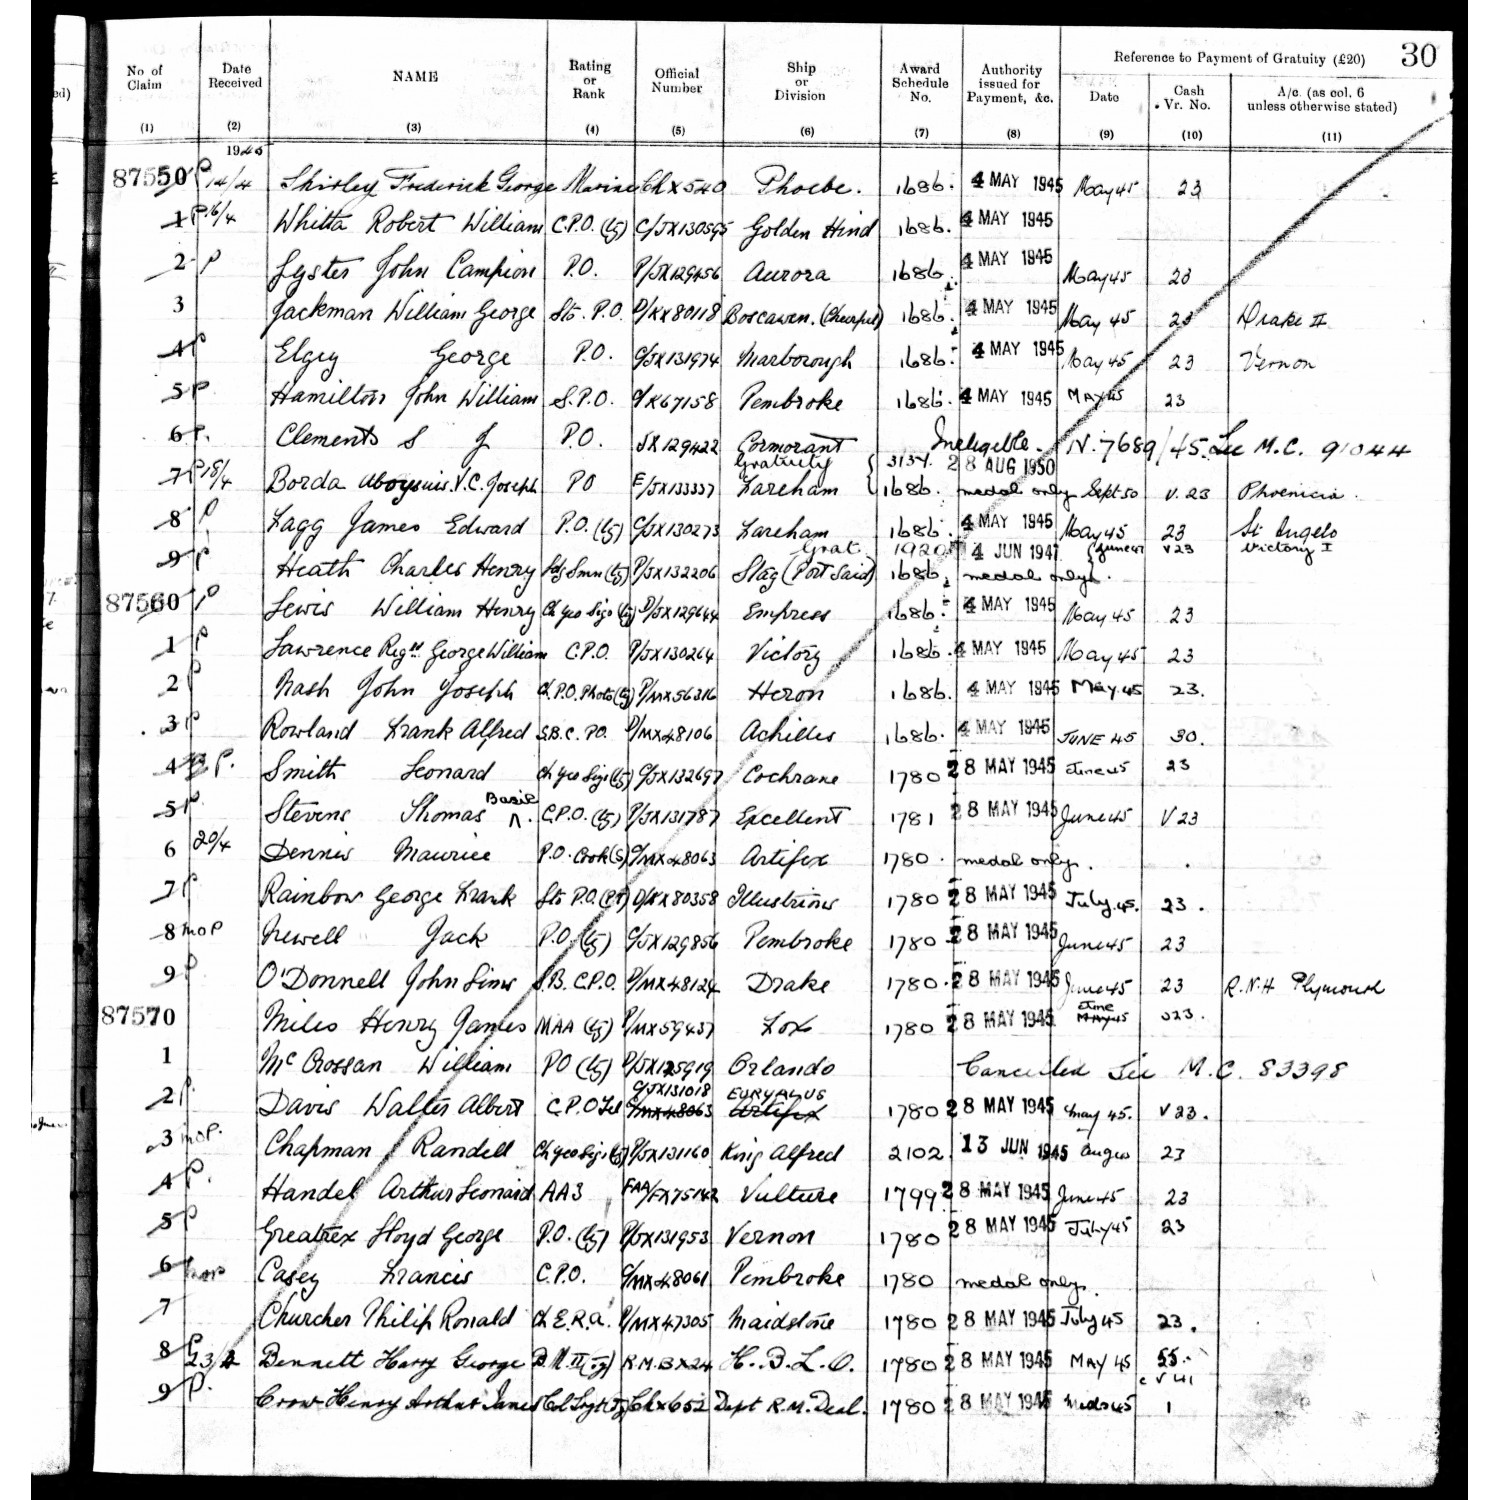 30
No of Claim Date Received NAME Rating or Rank Official Number Ship or Division Award Schedule No. Authority issued for Payment, &c. Reference to Payment of Gratuity (£20) Date Cash Vr. No. A/c. (as col. 6 unless otherwise stated)
(1) (2) (3) (4) (5) (6) (7) (8) (9) (10) (11)
1945
87550 P 14/4 Shirley Frederick George Marine Ch X 540 Phoebe. 1686. 4 MAY 1945 May 45 23
1 P 16/4 Whitta Robert William C.P.O. (Ty) C/JX130595 Golden Hind 1686. 4 MAY 1945
2 P Lyster John Campion P.O. P/JX129456 Aurora 1686. 4 MAY 1945 May 45 23
3 Jackman William George Sto. P.O. D/KX80118 Boscawen. (Cheerful) 1686. 4 MAY 1945 May 45 23 Drake II
4 P Elgey George P.O. C/JX131974 Marborough 1686. 4 MAY 1945 May 45 23 Vernon
5 P. Hamilton John William S.P.O. K67158 Pembroke 1686. 4 MAY 1945 MAY 45 23
6 P. Clements S J P.O. JX129422 Cormorant Ineligible. N. 7689/45. See M.C. 91044
Gratuity 3137. 28 AUG 1950
7 P 18/4 Borda Aloysuis. V.C. Joseph PO E/JX133337 Fareham 1686. medal only Sept 50 V. 23 Phoenicia.
8 P Fagg James Edward P.O. (Ty) C/JX130273 Fareham 1686. 4 MAY 1945 May 45 23 St Angelo
Grat. 1920 4 JUN 1947 June 47 V23 Victory I
9 P Heath Charles Henry Ldg Smn (Ty) P/JX132206 Stag (Port Said) 1686. medal only.
87560 P Lewis William Henry Ch Yeo Sigs (Ty) P/JX129644 Empress 1686. 4 MAY 1945 May 45 23
1 P Lawrence Regd. George William C.P.O. P/JX130264 Victory 1686. 4 MAY 1945 May 45 23
2 P Nash John Joseph Ch. P.O. Photo (Ty) P/MX56316 Heron 1686. 4 MAY 1945 May 45 23.
3 P Rowland Frank Alfred S.B.C. PO. P/MX48106 Achilles 1686. 4 MAY 1945 JUNE 45 30.
4 P. Smith Leonard Ch Yeo Sigs (Ty) C/JX132697 Cochrane 1780 28 MAY 1945 June 45 23
5 P Stevens Thomas Basil. C.P.O. (Ty) P/JX131787 Excellent 1781 28 MAY 1945 June 45 V 23
6 20/4 Dennis Maurice P.O. Cook (S) C/MX48063 Artifex 1780. medal only.
7 P Rainbow George Frank Sto P.O. D/KX80358 Illustrious 1780 28 MAY 1945 July 45. 23.
8 MOP Newell Jack P.O (Ty) C/JX129856 Pembroke 1780 28 MAY 1945 June 45 23
9 P O'Donnell John Sims S.B. C.P.O. D/MX48124 Drake 1780. 28 MAY 1945 June 45 23 R.N.H Plymouth
87570 Miles Henry James MAA (Ty) P/MX59437 Fox 1780 28 MAY 1945 June MAY 45 23.
1 McCrossan William PO (Ty) D/JX125919 Orlando Cancelled See M.C. 83398
C/JX131018 EURYALUS
2 P. Davis Walter Albert C.P.O Tel C/MX48063 Artifex 1780 28 MAY 1945 May 45. V 23.
3 MOP. Chapman Randell Ch Yeo Sigs (Ty) P/JX131160 King Alfred 2102 13 JUN 1945 23
4 P. Handel Arthur Leonard AA3 FAA/FX75142 Vulture 1799 28 MAY 1945 June 45 23
5 P Greatrex Lloyd George P.O. (Ty) P/JX131953 Vernon 1780 28 MAY 1945 July 45 23
6 MOP Casey Francis C.P.O. C/MX48061 Pembroke 1780 medal only.
7 Churcher Philip Ronald Ch E.R.A. P/MX47305 Maidstone 1780 28 MAY 1945 July 45 23.
8 P 23/4 Bennett Harry George B.M. II (Ty) R.M.B X24 H.B.L.O. 1780 28 MAY 1945 MAY 45 55.
V 41
9 P. Crow Henry Arthur James Col Sgt (Ty) Ch X652 Dept R.M. Deal. 1780 28 MAY 1945 1